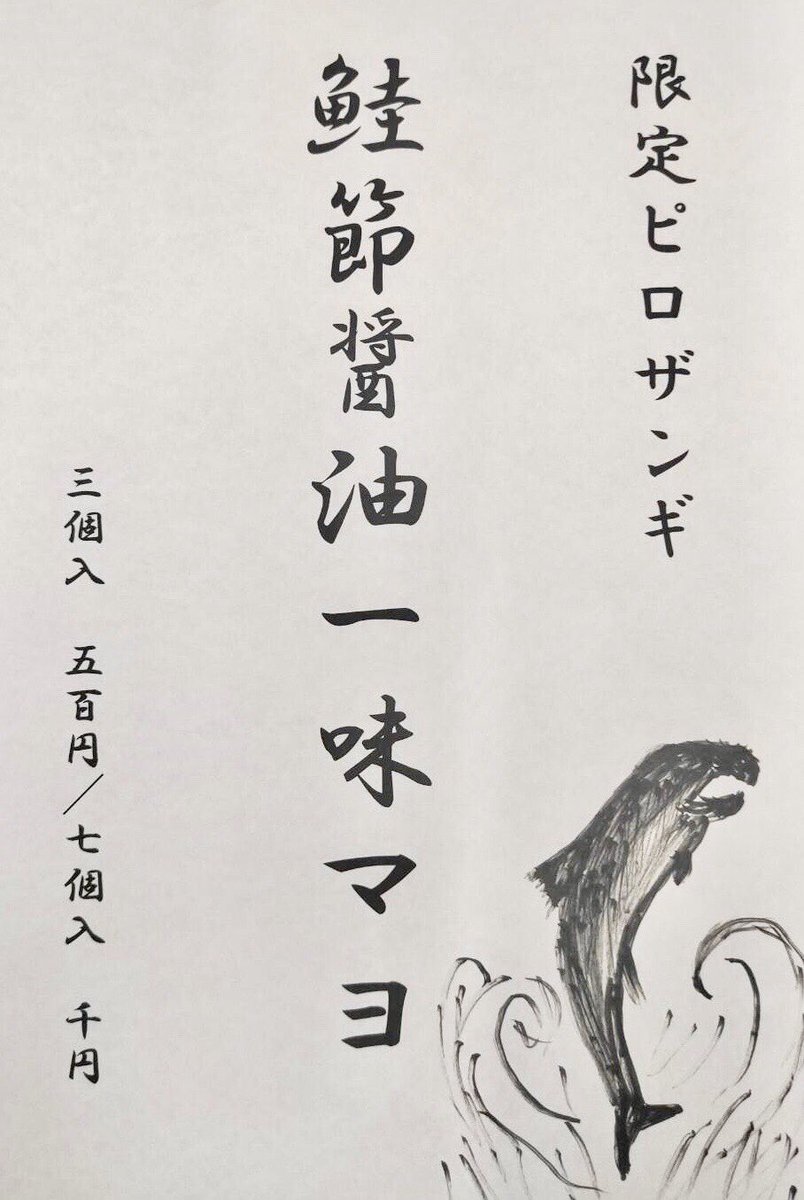 限定ピロザンギ
鮭節醤油一味マヨ
三個入　五百円/七個入　千円